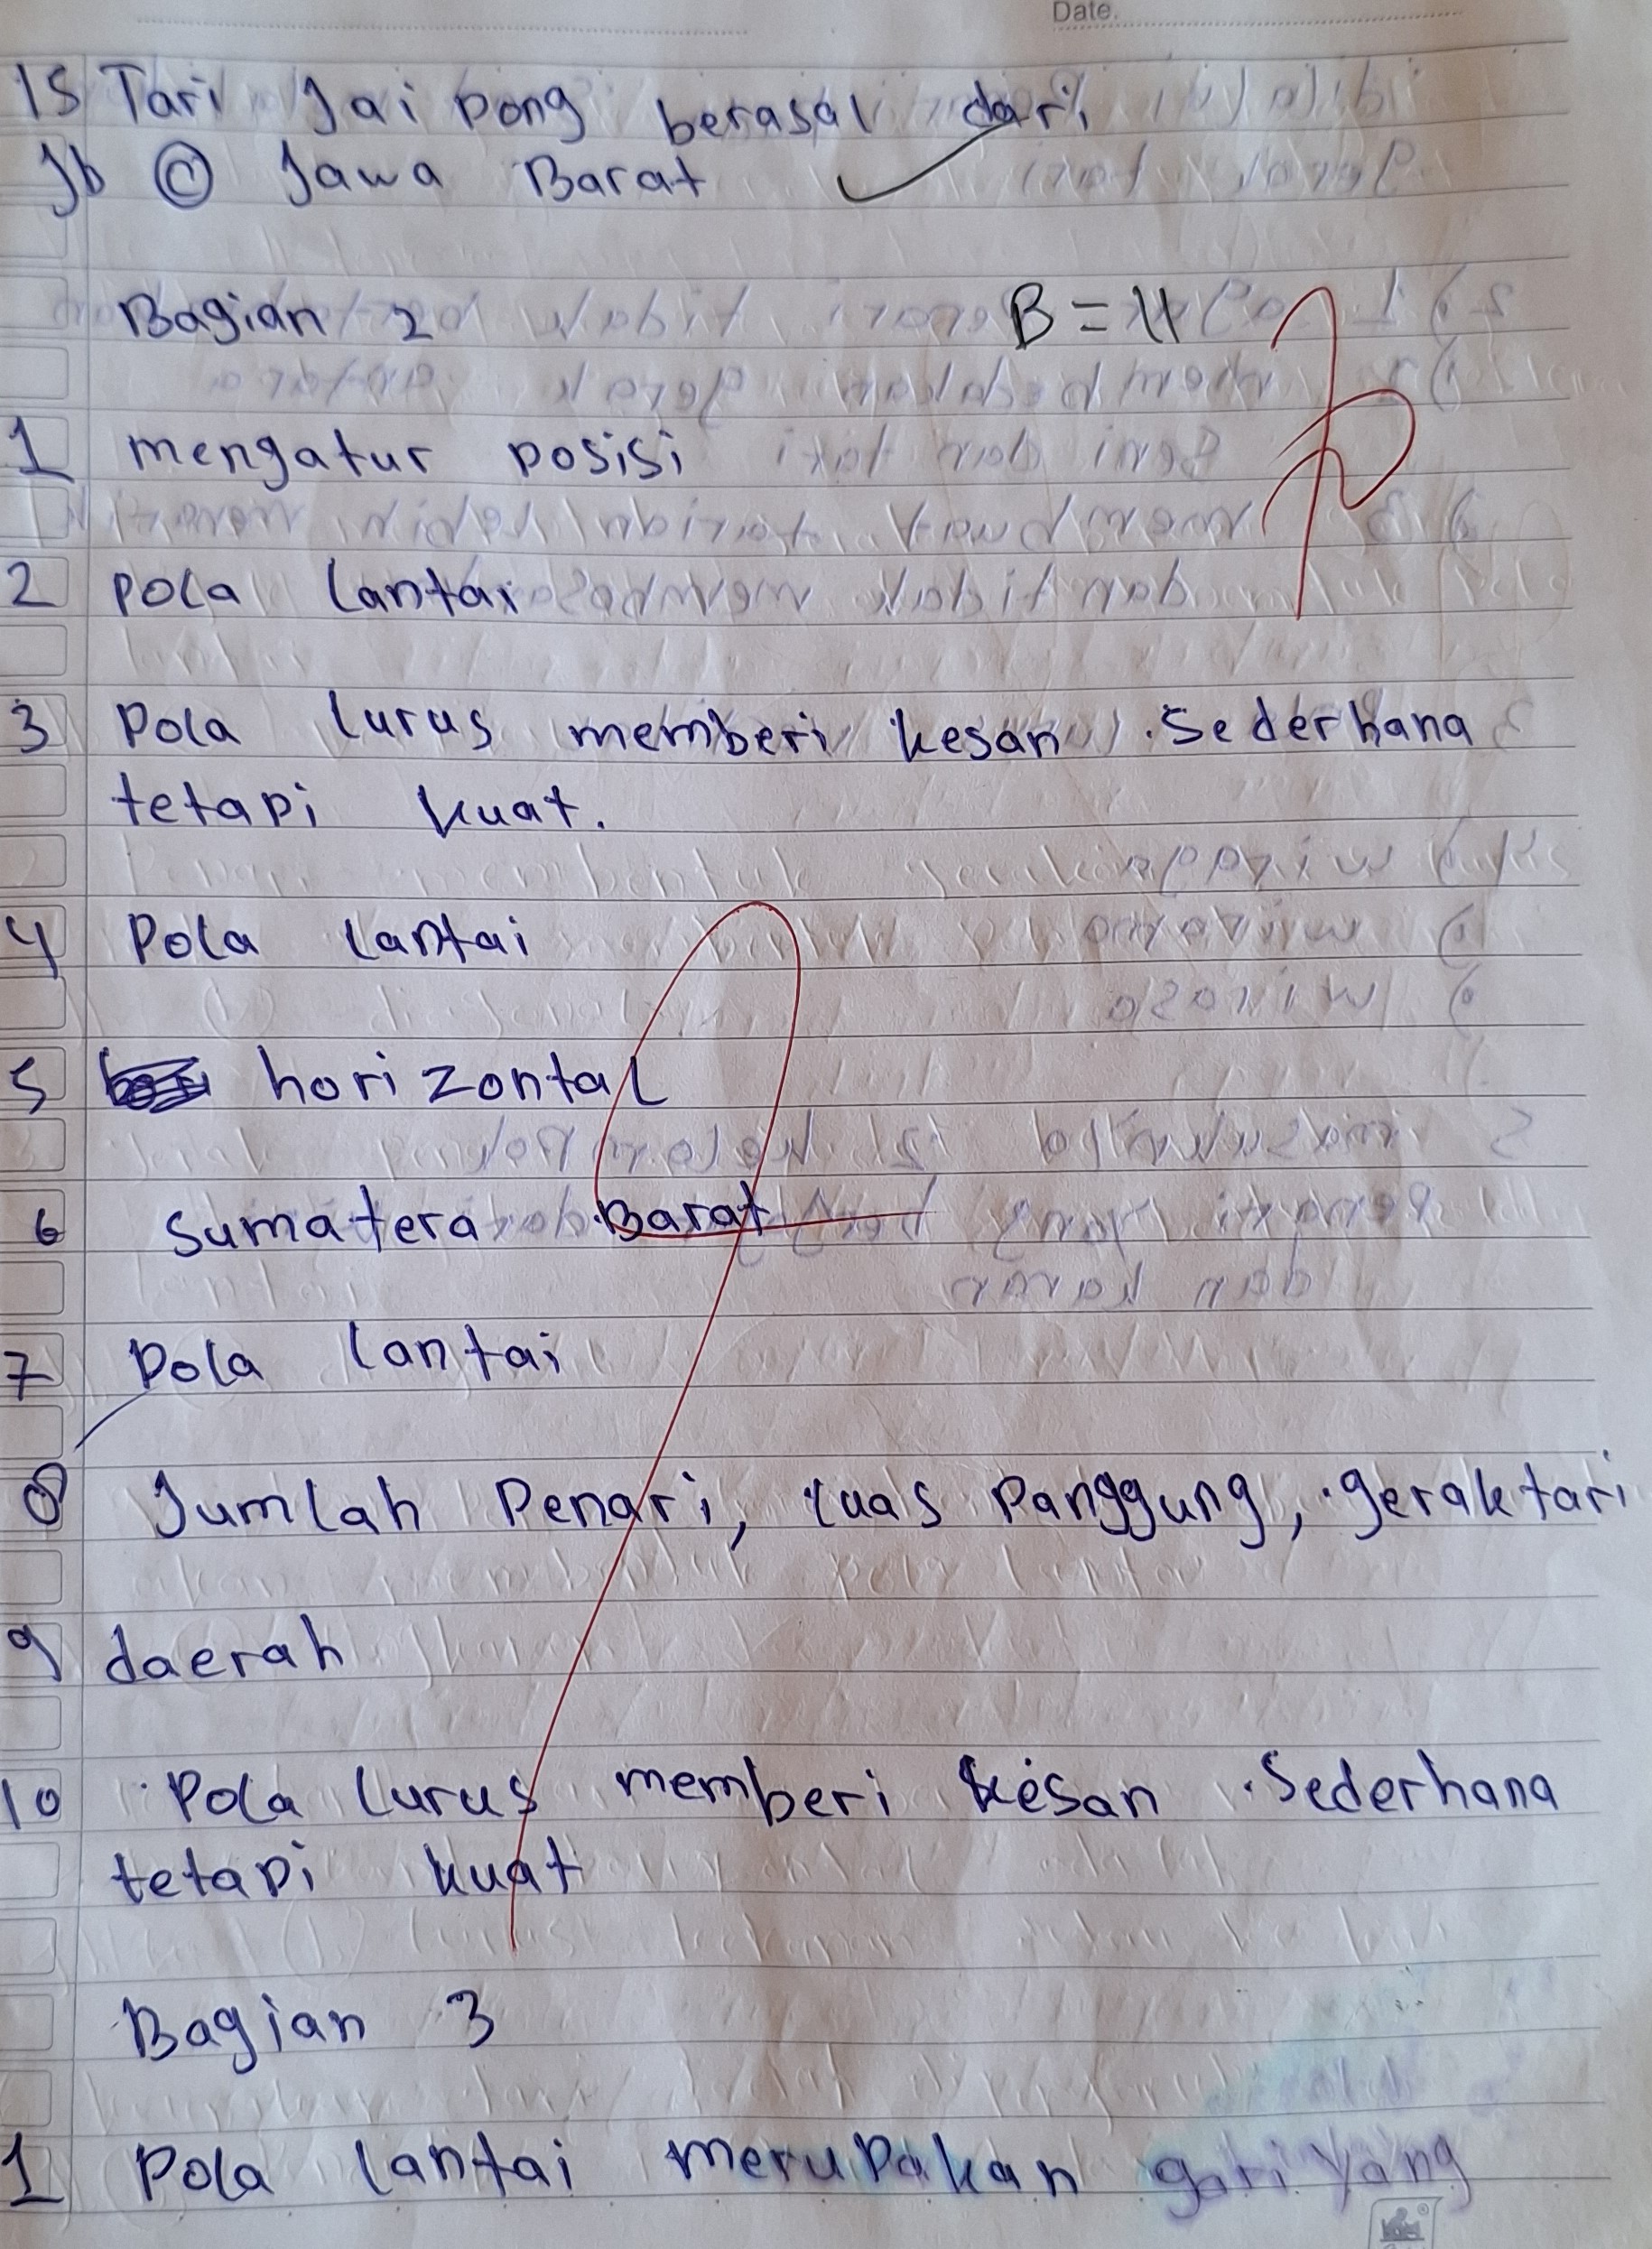 Date.
15 Tari Jaipong berasal dari
Jb © Jawa Barat
Bagian 2 B = 11
1 mengatur posisi
2 pola lantai
3 Pola lurus memberi kesan sederhana
tetapi kuat.
4 Pola lantai
5 horizontal
6 Sumatera Barat
7 Pola lantai
8 Jumlah Penari, luas Panggung, gerak tari
9 daerah
10 Pola lurus memberi kesan Sederhana
tetapi kuat
Bagian 3
1 Pola lantai merupakan gari yang